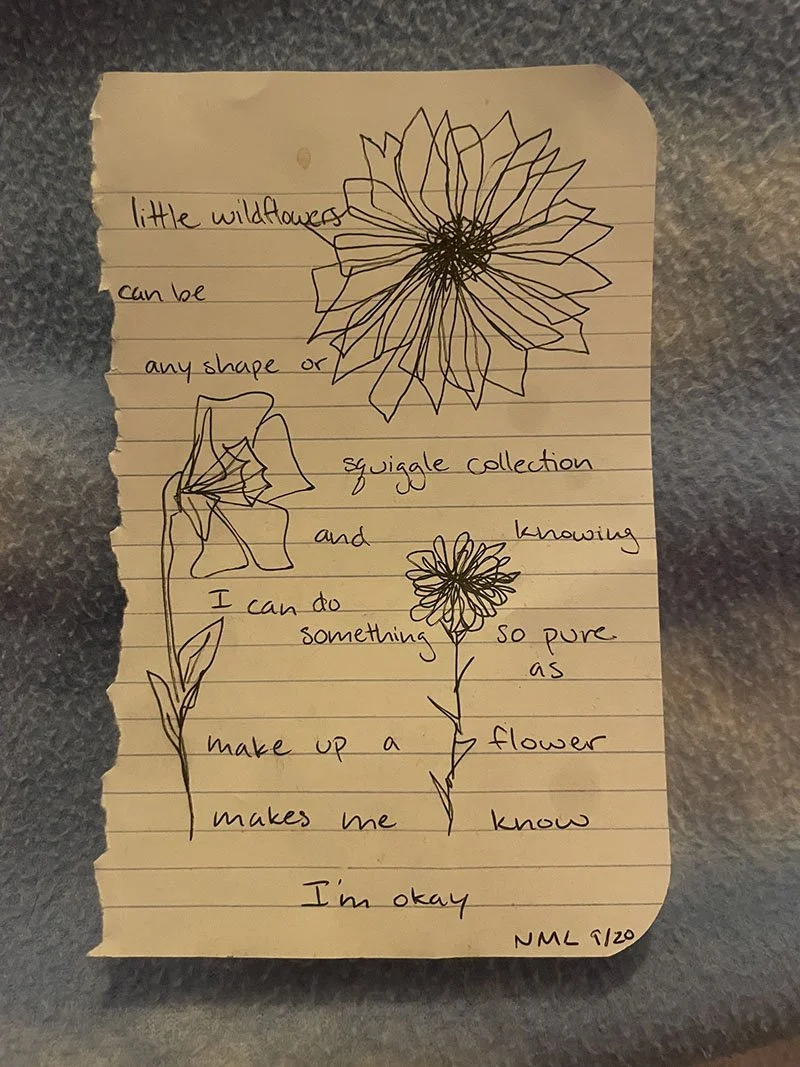 little wildflowers
can be
any shape or
squiggle collection
and knowing
I can do
something so pure
as
make up a flower
makes me know
I'm okay
NML 9/20